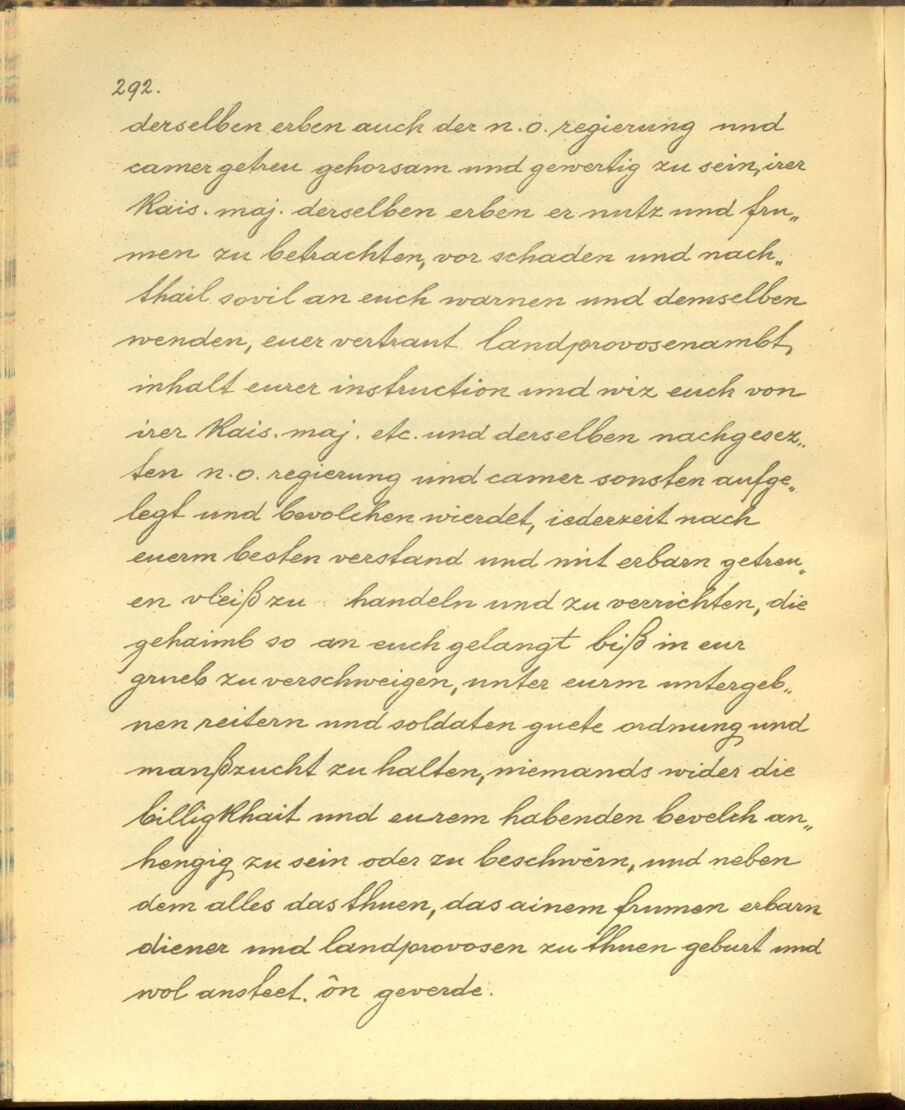 292.
derselben erben auch der n. o. regierung und
camer getreu gehorsam und gewertig zu sein, irer
Kais. maj. derselben erben er nutz und fru„
men zu betrachten, vor schaden und nach„
thail sovil an euch warnen und demselben
wenden, euer vertraut landprovosenambt,
inhalt eurer instruction und wiz euch von
irer Kais. maj. etc. und derselben nachgesez„
ten n. o. regierung und camer sonsten aufge„
legt und bevolchen wierdet, iederzeit nach
euerm besten verstand und mit erbarn getreu„
en vleiß zu handeln und zu verrichten, die
gehaimb so an euch gelangt biß in eur
grueb zu verschweigen, unter eurm untergeb„
nen reitern und soldaten guete ordnung und
manßzucht zu halten, niemands wider die
billigkhait und eurem habenden bevelch an„
hengig zu sein oder zu beschwërn, und neben
dem alles das thuen, das ainem frumen erbarn
diener und landprovosen zu thuen geburt und
wol ansteet. ôn geverde.